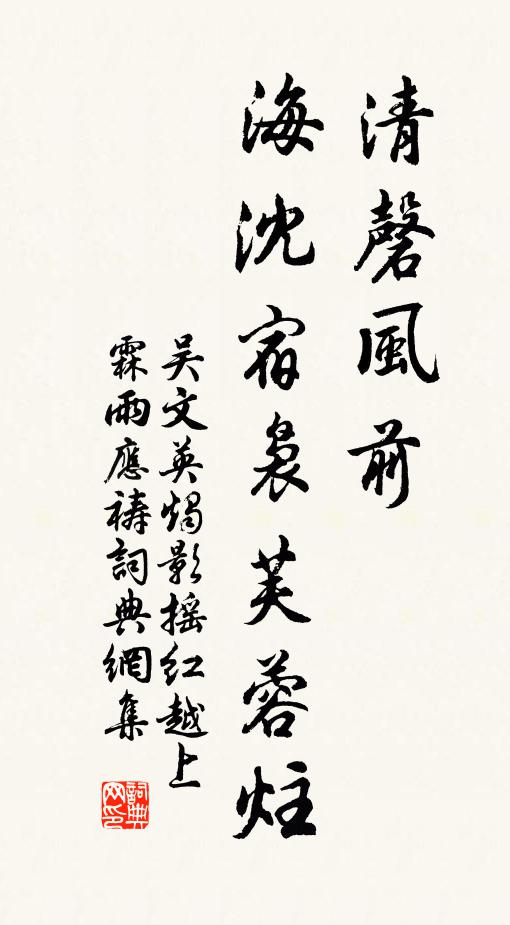 清磬風前
海沈宿裊芙蓉炷
吴文英燭影摇紅越上
霖雨應禱詞典網集
詞典网印